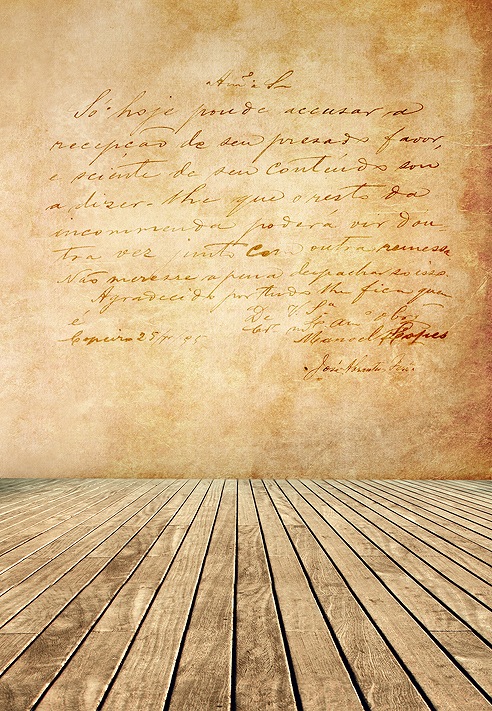 Am.º e Sr.
Só hoje poude accusar a
recepção de seu presado favor,
e sciente de seu contéudo sou
a dizer-lhe que o resto da
incommenda poderá vir d'ou-
tra vez junto com outra remessa
Não meresse a pena despachar so isso.
Agradecido por tudo lhe fica quem
é De V. Sa
Am.º obr.º
Manoel Lopes
José